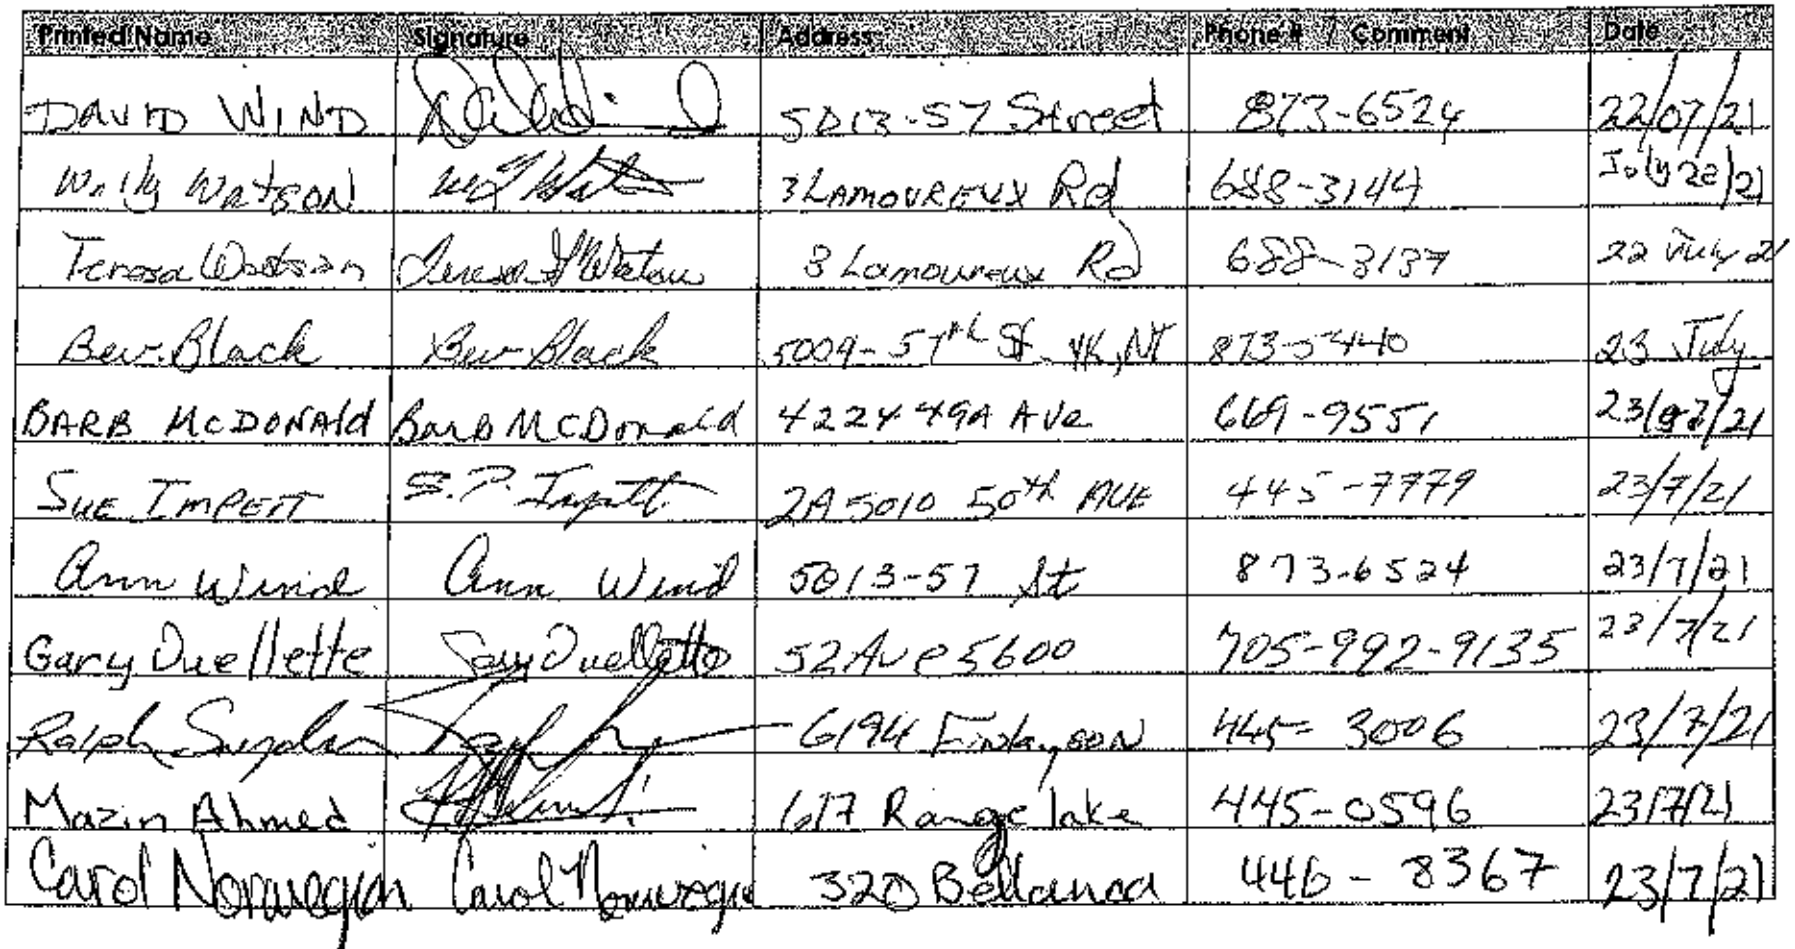 Printed Name Signature Address Phone # / Comment Date
DAVID WIND 5013-57 Street 873-6524 22/07/21
Wally Watson 3 LAMOUREUX Rd 688-3144 July 22/21
Teresa Watson Teresa Watson 3 Lamoureux Rd 688-3137 22 July 21
Bev. Black Bev Black 5009-57th St. YK, NT 873-5440 23 July
BARB McDONAld Barb McDonald 4224 49A AVe 669-9551 23/07/21
SUE IMPETT S.P. Impett 2A 5010 50th AVE 445-7779 23/7/21
Ann Wind Ann Wind 5013-57 St 873-6524 23/7/21
Gary Ouellette Gary Ouellette 52 Ave 5600 705-992-9135 23/7/21
Ralph 6194 Finlayson 445-3006 23/7/21
Mazin Ahmed 617 Range lake 445-0596 23/7/21
Carol Norwegian Carol Norwegian 320 Bellanca 446-8367 23/7/21